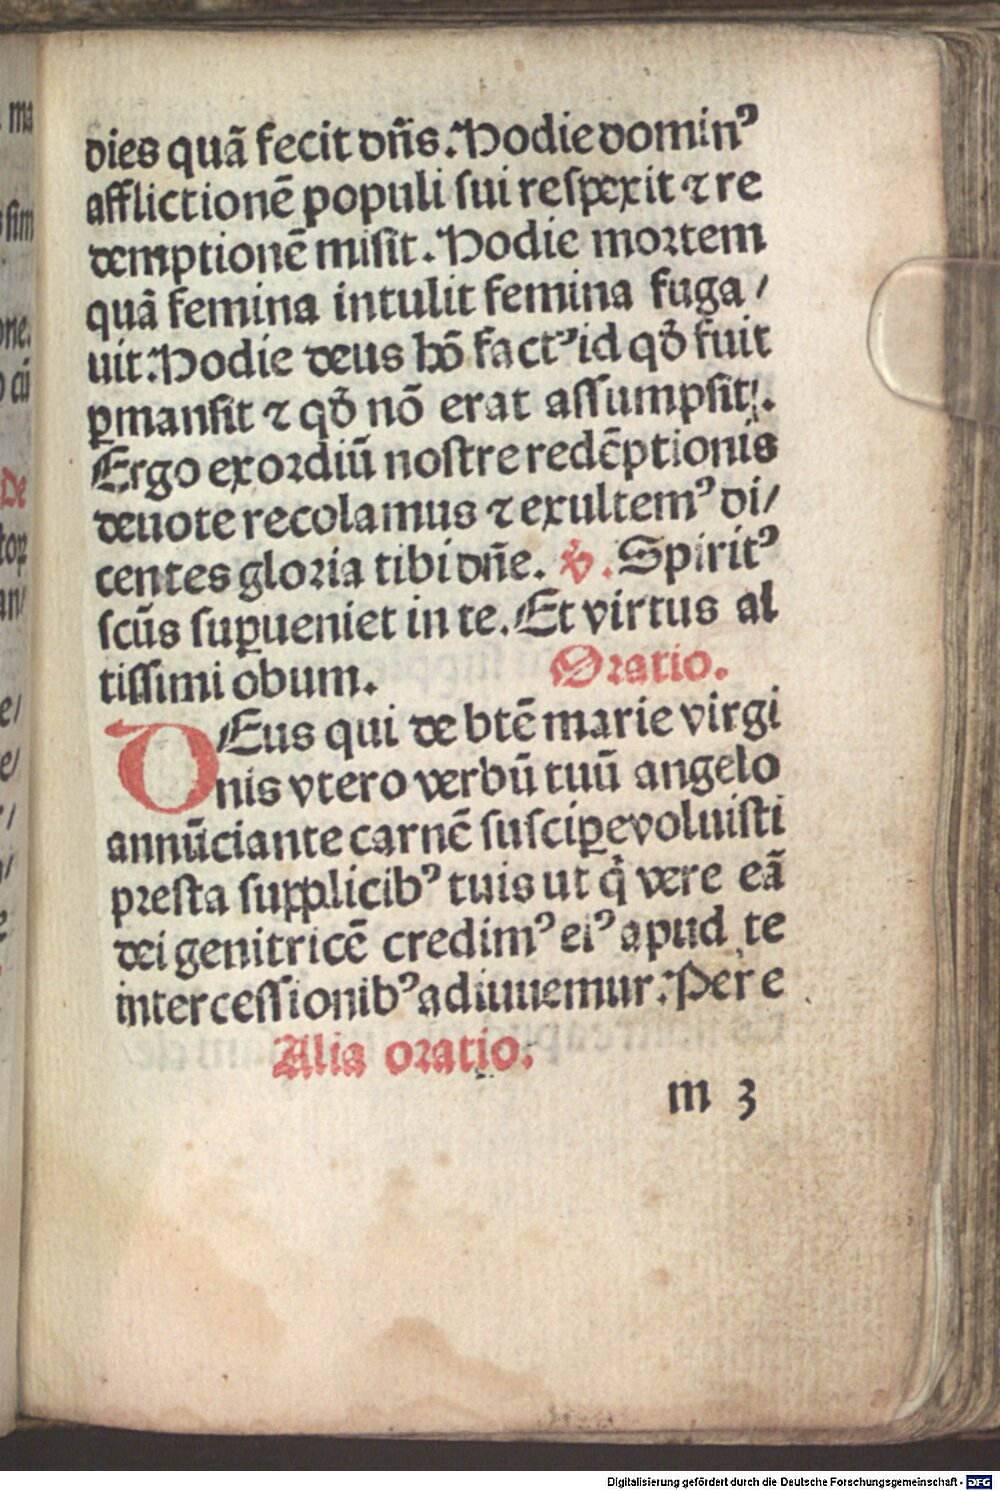 dies quã fecit dñs. Hodie dominꝰ
afflictionẽ populi sui respexit ⁊ re
demptionẽ misit. Hodie mortem
quã femina intulit femina fuga/
uit. Hodie deus hõ factꝰ id qď fuit
ꝑmansit ⁊ qď nõ erat assumpsit.
Ergo exordiũ nostre redẽptionis
deuote recolamus ⁊ exultemꝰ di/
centes gloria tibi dñe. ℣. Spiritꝰ
scũs suꝑueniet in te. Et virtus al
tissimi obum. Oratio.
DEus qui de btẽ marie virgi
nis vtero verbũ tuũ angelo
annũciante carnẽ susciꝑe voluisti
presta supplicibꝰ tuis ut q̇ vere eã
dei genitricẽ credimꝰ eiꝰ apud te
intercessionibꝰ adiuuemur. Per e
Alia oratio.
m 3
Digitalisierung gefördert durch die Deutsche Forschungsgemeinschaft - DFG